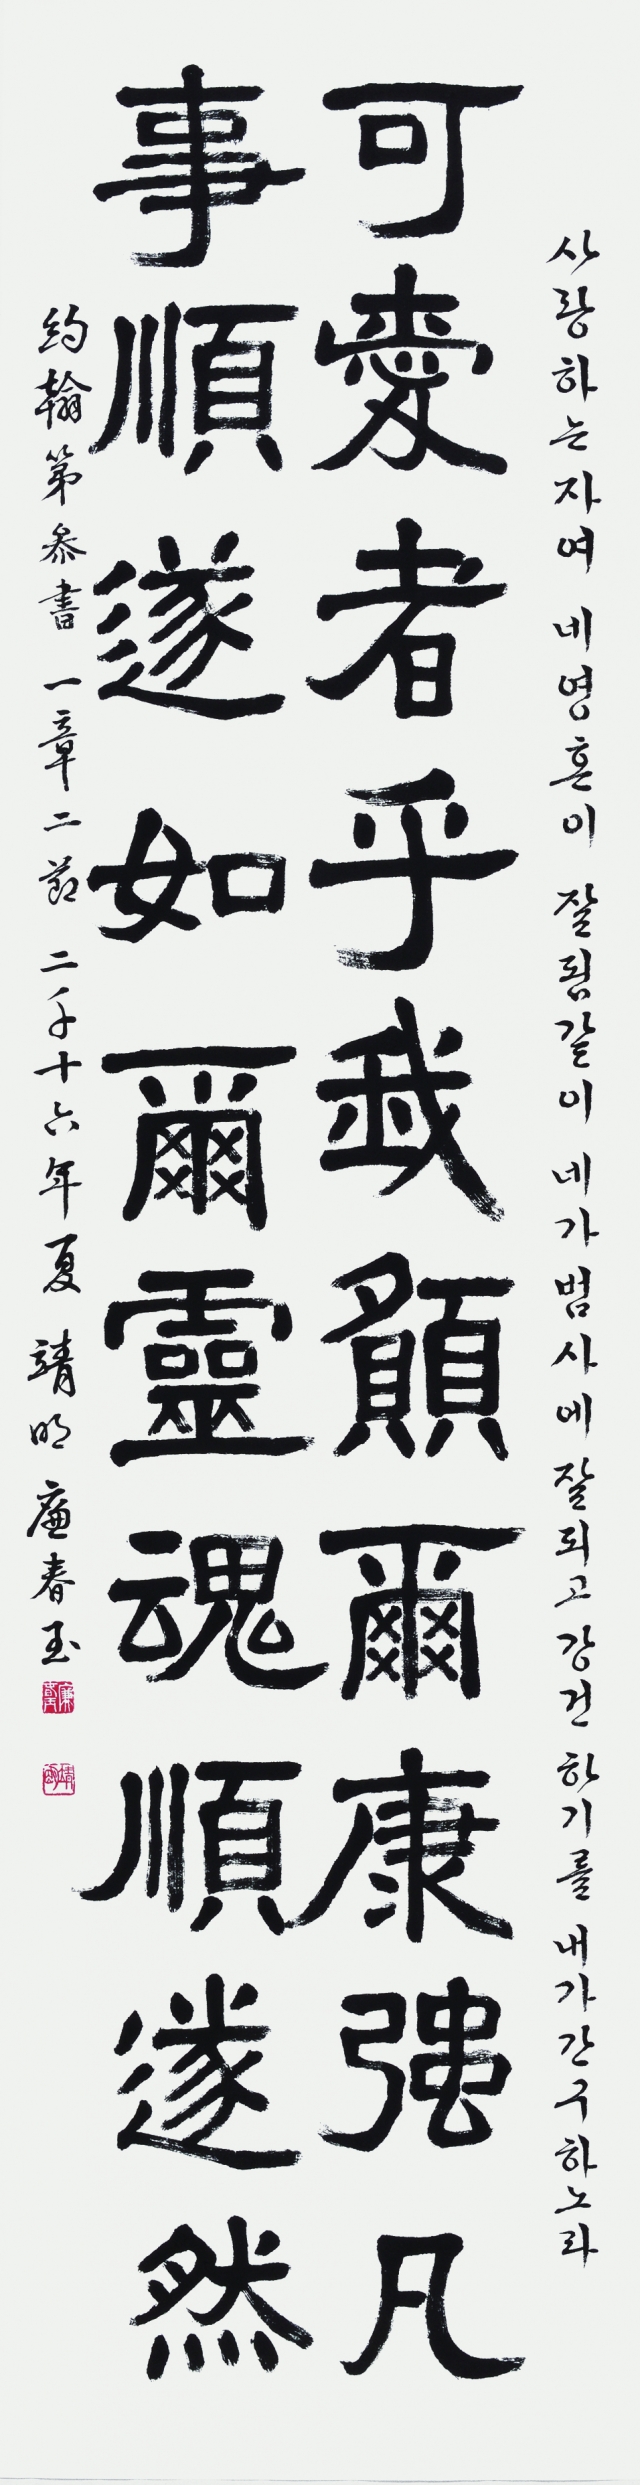 사랑하는자여 네영혼이 잘됨같이 네가범사에 잘되고강건 하기를 내가간구하노라
可愛者乎我願爾康强凡
事順遂如爾靈魂順遂然
約翰第參書 一章二節 二千十六年夏 靖明 廉春玉